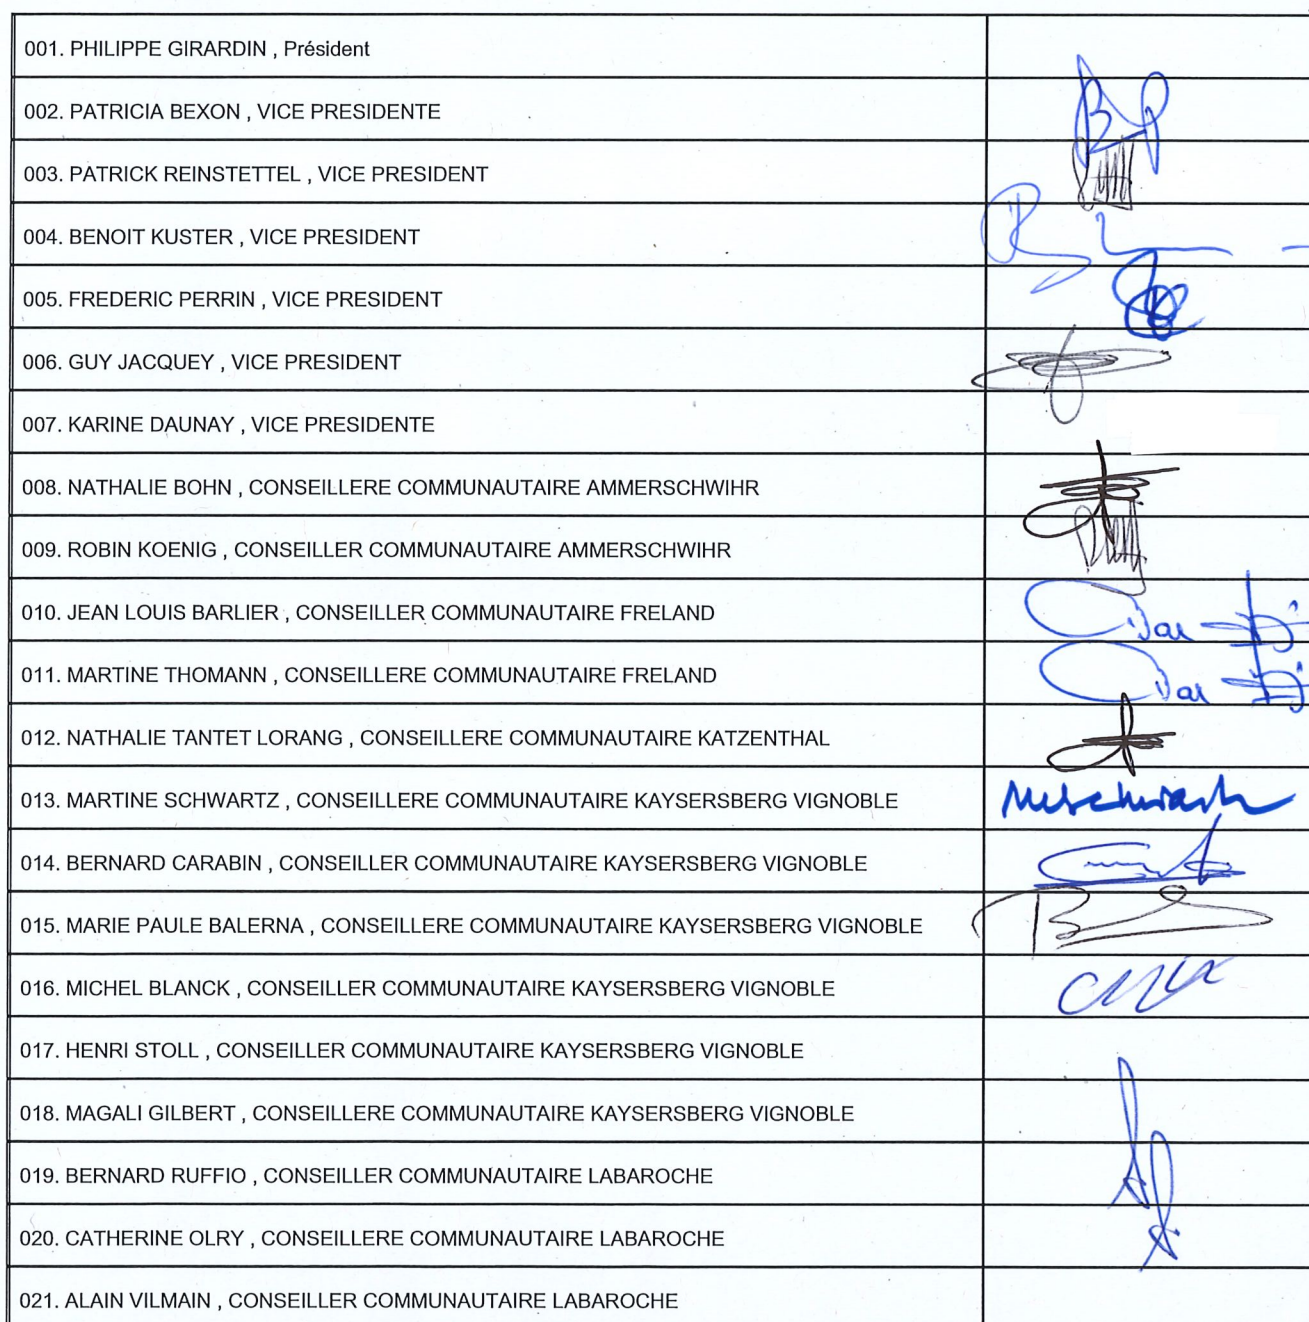 001. PHILIPPE GIRARDIN , Président
002. PATRICIA BEXON , VICE PRESIDENTE
003. PATRICK REINSTETTEL , VICE PRESIDENT
004. BENOIT KUSTER , VICE PRESIDENT
005. FREDERIC PERRIN , VICE PRESIDENT
006. GUY JACQUEY , VICE PRESIDENT
007. KARINE DAUNAY , VICE PRESIDENTE
008. NATHALIE BOHN , CONSEILLERE COMMUNAUTAIRE AMMERSCHWIHR
009. ROBIN KOENIG , CONSEILLER COMMUNAUTAIRE AMMERSCHWIHR
010. JEAN LOUIS BARLIER , CONSEILLER COMMUNAUTAIRE FRELAND
011. MARTINE THOMANN , CONSEILLERE COMMUNAUTAIRE FRELAND
012. NATHALIE TANTET LORANG , CONSEILLERE COMMUNAUTAIRE KATZENTHAL
013. MARTINE SCHWARTZ , CONSEILLERE COMMUNAUTAIRE KAYSERSBERG VIGNOBLE
014. BERNARD CARABIN , CONSEILLER COMMUNAUTAIRE KAYSERSBERG VIGNOBLE
015. MARIE PAULE BALERNA , CONSEILLERE COMMUNAUTAIRE KAYSERSBERG VIGNOBLE
016. MICHEL BLANCK , CONSEILLER COMMUNAUTAIRE KAYSERSBERG VIGNOBLE
017. HENRI STOLL , CONSEILLER COMMUNAUTAIRE KAYSERSBERG VIGNOBLE
018. MAGALI GILBERT , CONSEILLERE COMMUNAUTAIRE KAYSERSBERG VIGNOBLE
019. BERNARD RUFFIO , CONSEILLER COMMUNAUTAIRE LABAROCHE
020. CATHERINE OLRY , CONSEILLERE COMMUNAUTAIRE LABAROCHE
021. ALAIN VILMAIN , CONSEILLER COMMUNAUTAIRE LABAROCHE